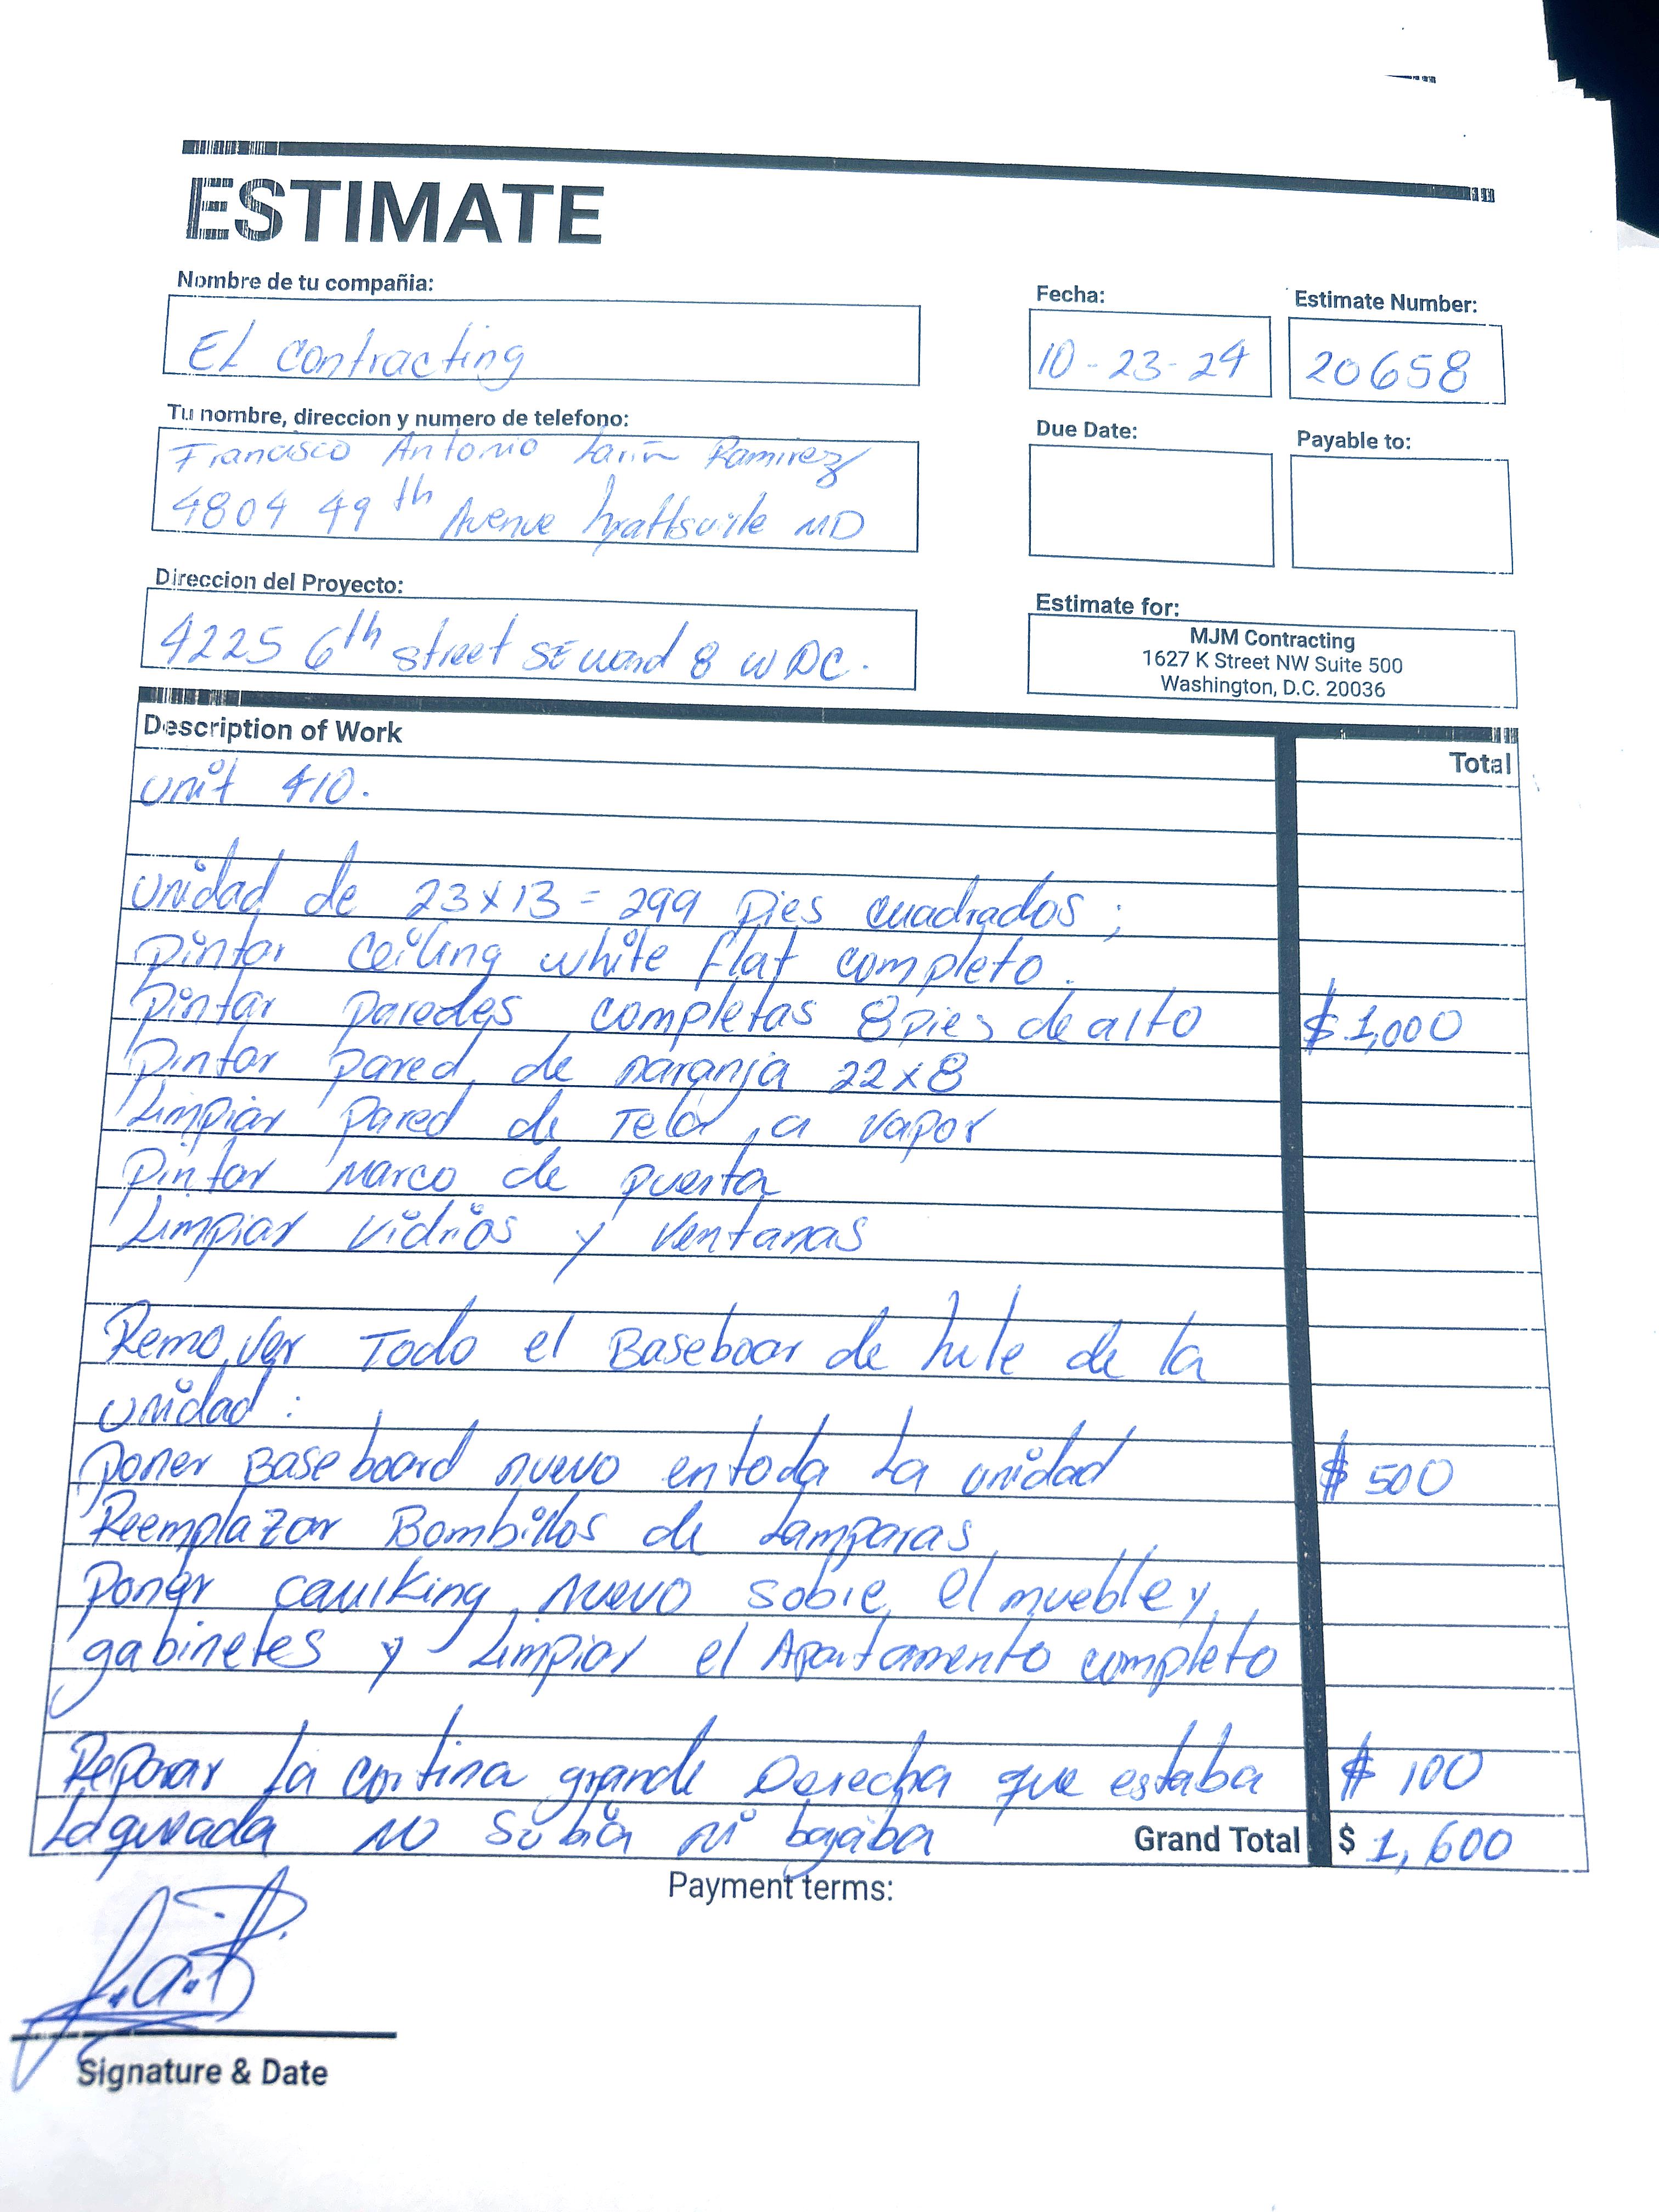 ESTIMATE
Nombre de tu compañia:
EL Contracting
Fecha:
10-23-24
Estimate Number:
20658
Tu nombre, direccion y numero de telefono:
Francisco Antonio Larin Ramirez
4804 49th Avenue hyattsville MD
Due Date:
Payable to:
Direccion del Proyecto:
4225 6th street SE ward 8 W DC.
Estimate for:
MJM Contracting
1627 K Street NW Suite 500
Washington, D.C. 20036
Description of Work
Total
Unit 410.
Unidad de 23x13 = 299 Pies cuadrados;
Pintar Ceiling white flat completo.
Pintar Paredes completas 8 pies de alto $ 1,000
Pintar pared de naranja 22x8
Limpiar Pared de Tela a vapor
Pintar Marco de puerta
Limpiar vidrios y ventanas
Remover Todo el Baseboar de hule de la
unidad:
Poner Baseboard nuevo en toda La unidad $ 500
Reemplazar Bombillos de Lamparas
Poner caulking nuevo sobre el mueble y
gabinetes y Limpiar el Apartamento completo
Reparar la cortina grande Derecha que estaba $ 100
no subia ni bajaba
Grand Total $ 1,600
Payment terms:
Signature & Date